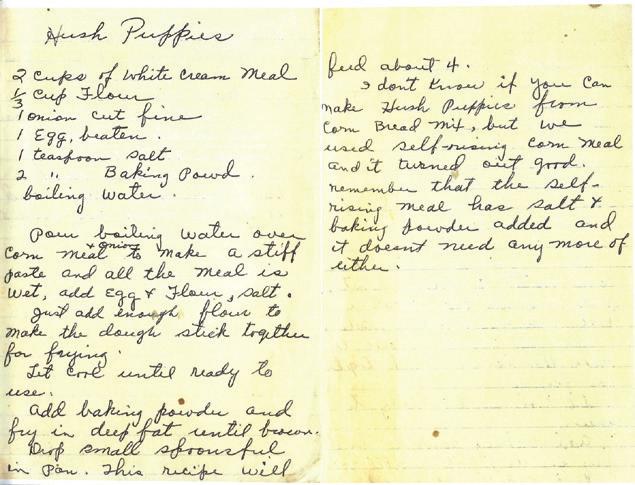 Hush Puppies
2 cups of White Cream Meal
1/3 Cup Flour
1 onion cut fine
1 Egg, beaten.
1 teaspoon salt
2 " Baking Powd.
boiling water.
Pour boiling water over
corn meal + onion to make a stiff
paste and all the meal is
wet, add Egg & Flour, salt.
Just add enough flour to
make the dough stick together
for frying.
Let cool until ready to
use.
Add baking powder and
fry in deep fat until brown.
Drop small spoonsful
in Pan. This recipe will
feed about 4.
I don't Know if you Can
make Hush Puppies from
Corn Bread Mix, but we
used self-rising corn meal
and it turned out good.
remember that the self-
rising meal has salt &
baking powder added and
it doesn't need any more of
either.